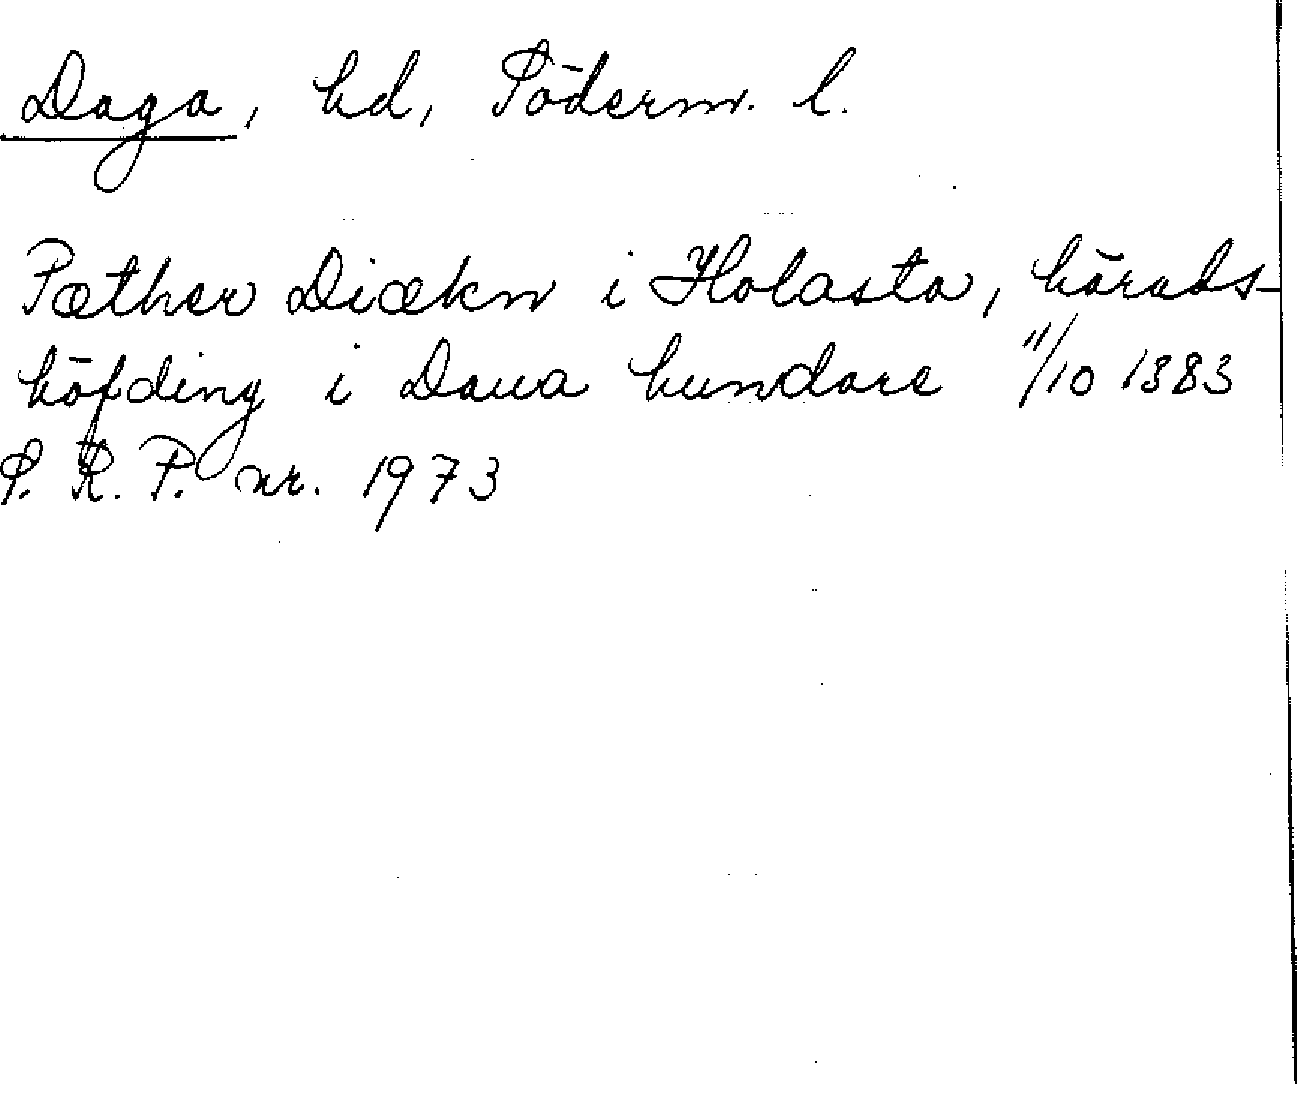 Daga, hd, Söderm. l.
Pæther Diækn i Holasta, härads-
höfding i Daua hundare 11/10 1383
S. R. P. nr. 1973